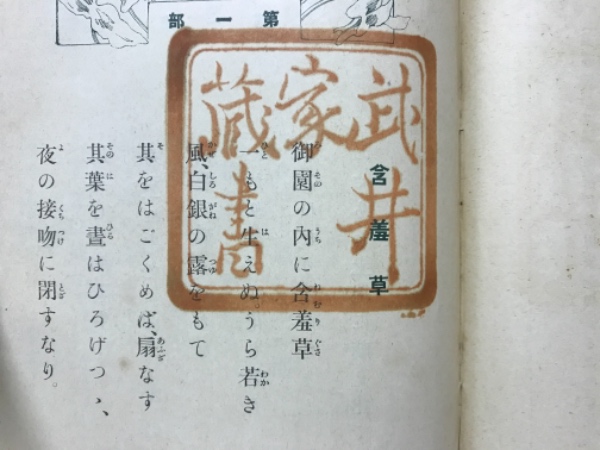 第一部
武井
家
蔵書
含羞草
御園の內に含羞草
一もと生えぬ。うら若き
風、白銀の露をもて
其をはごくめば、扇なす
其葉を晝はひろげつゝ、
夜の接吻に閉すなり。